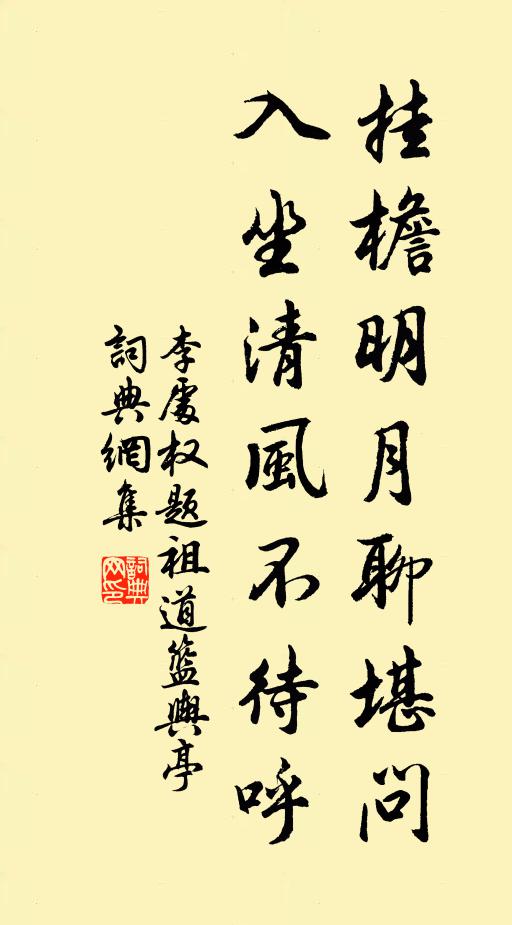 挂檐明月聊堪問
入坐清風不待呼
李處权题祖道籃輿亭
詞典網集
詞典網印